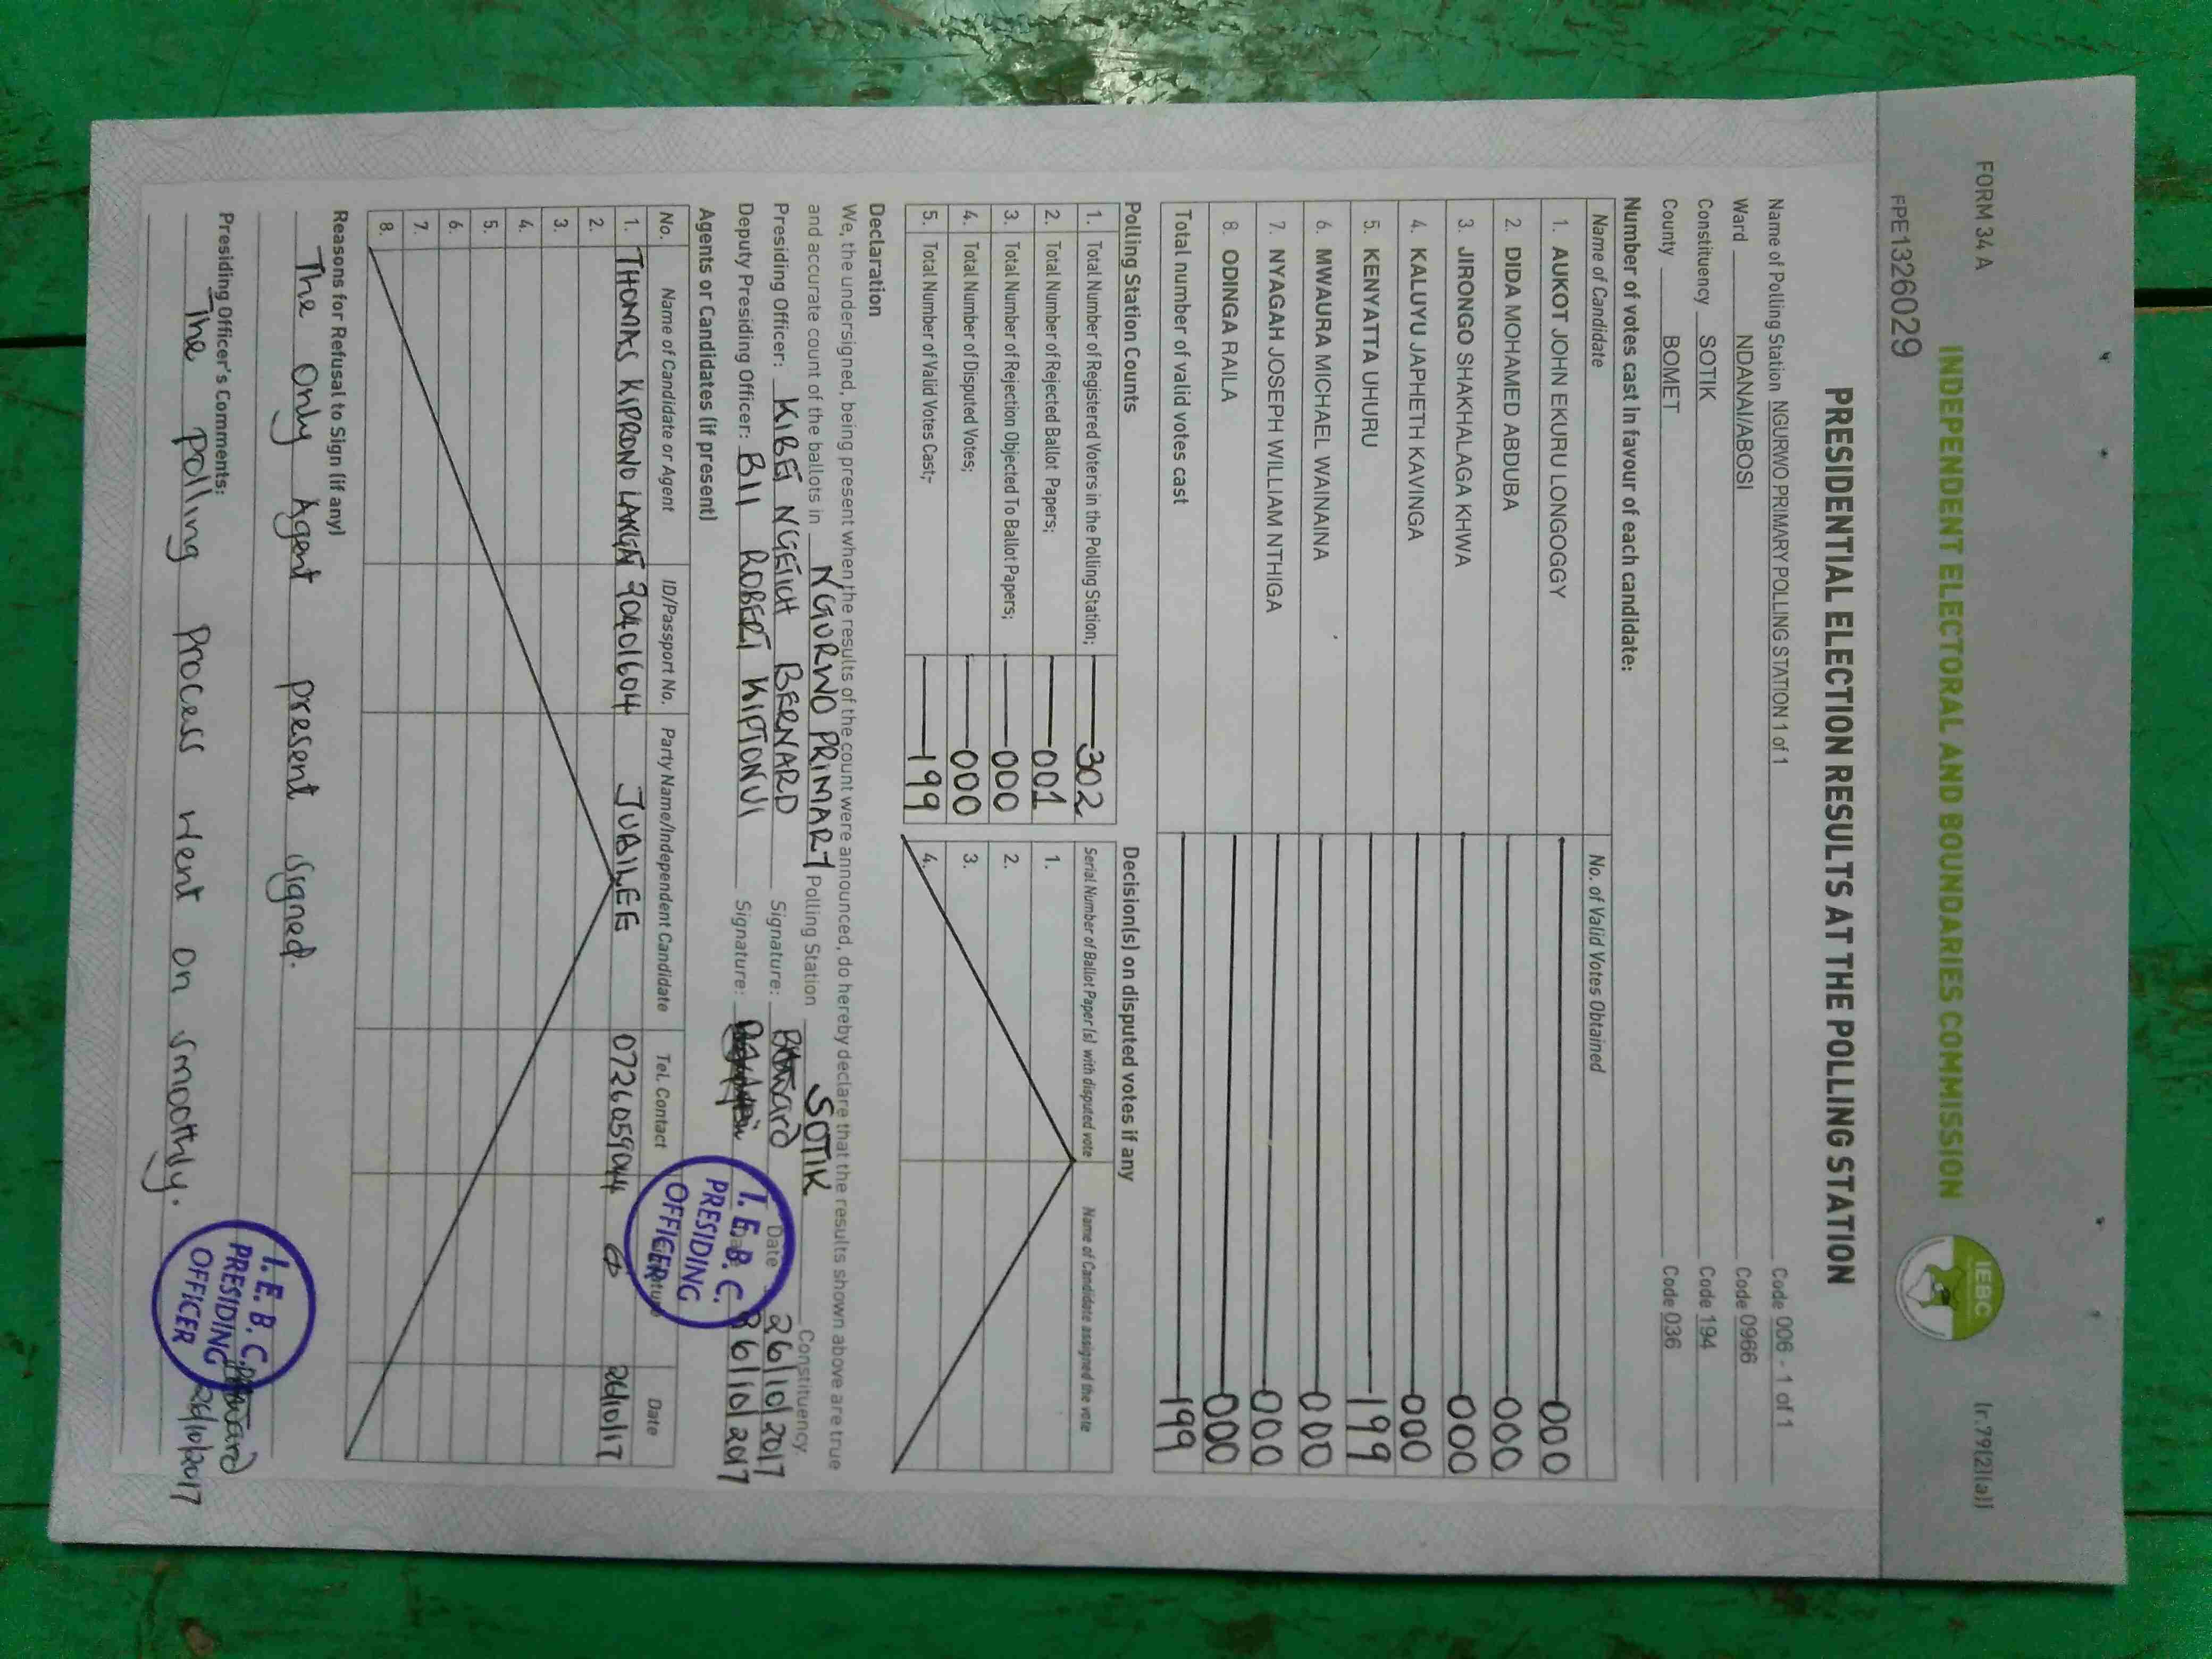 FORM 34 A
(r.79(2)(a))
INDEPENDENT ELECTORAL AND BOUNDARIES COMMISSION
IEBC
FPE1326029
PRESIDENTIAL ELECTION RESULTS AT THE POLLING STATION
Name of Polling Station NGURWO PRIMARY POLLING STATION 1 of 1 Code 006 - 1 of 1
Ward NDANAI/ABOSI Code 0966
Constituency SOTIK Code 194
County BOMET Code 036
Number of votes cast in favour of each candidate:
Name of Candidate No. of Valid Votes Obtained
1. AUKOT JOHN EKURU LONGOGGY 000
2. DIDA MOHAMED ABDUBA 000
3. JIRONGO SHAKHALAGA KHWA 000
4. KALUYU JAPHETH KAVINGA 000
5. KENYATTA UHURU 199
6. MWAURA MICHAEL WAINAINA 000
7. NYAGAH JOSEPH WILLIAM NTHIGA 000
8. ODINGA RAILA 000
Total number of valid votes cast 199
Polling Station Counts Decision(s) on disputed votes if any
1. Total Number of Registered Voters in the Polling Station; 302
2. Total Number of Rejected Ballot Papers; 001
3. Total Number of Rejection Objected To Ballot Papers; 000
4. Total Number of Disputed Votes; 000
5. Total Number of Valid Votes Cast;- 199
Serial Number of Ballot Paper(s) with disputed vote Name of Candidate assigned the vote
1.
2.
3.
4.
Declaration
We, the undersigned, being present when the results of the count were announced, do hereby declare that the results shown above are true
and accurate count of the ballots in NGURWO PRIMARY Polling Station SOTIK Constituency.
Presiding Officer: KIBET NGETICH BERNARD Signature: Date 26/10/2017
Deputy Presiding Officer: BII ROBERT KIPTONUI Signature: 26/10/2017
I. E. B. C.
PRESIDING
OFFICER
Agents or Candidates (if present)
No. Name of Candidate or Agent ID/Passport No. Party Name/Independent Candidate Tel. Contact Date
1. THOMAS KIPRONO LANGAT JUBILEE 0726059044 26/10/17
2.
3.
4.
5.
6.
7.
8.
Reasons for Refusal to Sign (if any)
The only Agent present signed.
Presiding Officer's Comments:
The polling process went on smoothly.
I. E. B. C.
PRESIDING
OFFICER
26/10/2017